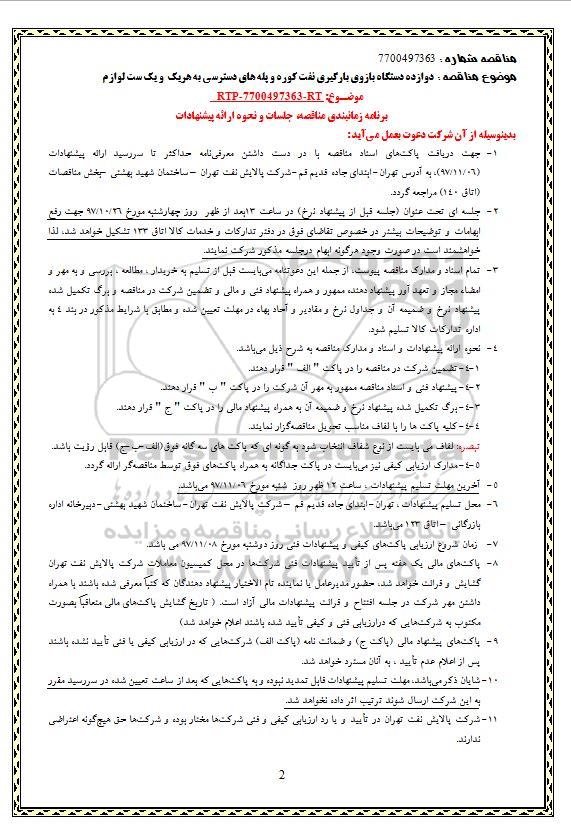 مناقصه شماره : 7700497363
موضوع مناقصه : دوازده دستگاه بازوی بارگیری نفت کوره و پله های دسترسی به هریک و یک ست لوازم
موضـوع: RTP-7700497363-RT
برنامه زمانبندی مناقصه، جلسات و نحوه ارائه پیشنهادات
بدینوسیله از آن شرکت دعوت بعمل می‌آید:
۱- جهت دریافت پاکت‌های اسناد مناقصه با در دست داشتن معرفی‌نامه حداکثر تا سررسید ارائه پیشنهادات
(۹۷/۱۱/۰۶)، به آدرس تهران -ابتدای جاده قدیم قم -شرکت پالایش نفت تهران – ساختمان شهید بهشتی -بخش مناقصات
(اتاق ۱۴۰) مراجعه گردد.
۲- جلسه ای تحت عنوان (جلسه قبل از پیشنهاد نرخ) در ساعت ۱۳بعد از ظهر روز چهارشنبه مورخ ۹۷/۱۰/۲۶ جهت رفع
ابهامات و توضیحات بیشتر در خصوص تقاضای فوق در دفتر تدارکات و خدمات کالا اتاق ۱۳۳ تشکیل خواهد شد، لذا
خواهشمند است در صورت وجود هرگونه ابهام درجلسه مذکور شرکت نمایند.
۳- تمام اسناد و مدارک مناقصه پیوست، از جمله این دعوتنامه می‌بایست قبل از تسلیم به خریدار ، مطالعه ، بررسی و به مهر و
امضاء مجاز و تعهد آور پیشنهاد دهنده ممهور و همراه پیشنهاد فنی و مالی و تضمین شرکت در مناقصه و برگ تکمیل شده
پیشنهاد نرخ و ضمیمه آن و جداول نرخ و مقادیر و آحاد بهاء در مهلت تعیین شده و مطابق با شرایط مذکور در بند ۴ به
اداره تدارکات کالا تسلیم شود.
۴- نحوه ارائه پیشنهادات و اسناد و مدارک مناقصه به شرح ذیل می‌باشد.
۴-۱- تضمین شرکت در مناقصه را در پاکت " الف " قرار دهند.
۴-۲- پیشنهاد فنی و اسناد مناقصه ممهور به مهر آن شرکت را در پاکت " ب " قرار دهند.
۴-۳- برگ تکمیل شده پیشنهاد نرخ و ضمیمه آن به همراه پیشنهاد مالی را در پاکت " ج " قرار دهند.
۴-۴- کلیه پاکت ها را با لفاف مناسب تحویل مناقصه‌گزار نمایند.
تبصره: لفاف می بایست از نوع شفاف انتخاب شود به گونه ای که پاکت های سه گانه فوق(الف-ب-ج) قابل رؤیت باشد.
۴-۵- مدارک ارزیابی کیفی نیز می‌بایست در پاکت جداگانه به همراه پاکت‌های فوق توسط مناقصه‌گر ارائه گردد.
۵- آخرین مهلت تسلیم پیشنهادات ، ساعت ۱۲ ظهر روز شنبه مورخ ۹۷/۱۱/۰۶ می‌باشد.
۶- محل تسلیم پیشنهادات ، تهران -ابتدای جاده قدیم قم – شرکت پالایش نفت تهران - ساختمان شهید بهشتی -دبیرخانه اداره
بازرگانی –اتاق ۱۲۳ می‌باشد.
۷- زمان شروع ارزیابی پاکت‌های کیفی و پیشنهادات فنی روز دوشنبه مورخ ۹۷/۱۱/۰۸ می باشد.
۸- پاکت‌های مالی یک هفته پس از تأیید پیشنهادات فنی شرکت‌ها در محل کمیسیون معاملات شرکت پالایش نفت تهران
گشایش و قرائت خواهد شد، حضور مدیرعامل یا نماینده تام الاختیار پیشنهاد دهندگان که کتباً معرفی شده باشند با همراه
داشتن مهر شرکت در جلسه افتتاح و قرائت پیشنهادات مالی آزاد است. ( تاریخ گشایش پاکت‌های مالی متعاقباً بصورت
مکتوب به شرکت‌هایی که درارزیابی فنی و کیفی تأیید شده باشند اعلام خواهد شد)
۹- پاکت‌های پیشنهاد مالی (پاکت ج) و ضمانت نامه (پاکت الف) شرکت‌هایی که در ارزیابی کیفی یا فنی تأیید نشده باشند
پس از اعلام عدم تأیید ، به آنان مسترد خواهد شد.
۱۰- شایان ذکر می‌باشد، مهلت تسلیم پیشنهادات قابل تمدید نبوده و به پاکت‌هایی که بعد از ساعت تعیین شده در سررسید مقرر
به این شرکت ارسال شوند ترتیب اثر داده نخواهد شد.
۱۱- شرکت پالایش نفت تهران در تأیید و یا رد ارزیابی کیفی و فنی شرکت‌ها مختار بوده و شرکت‌ها حق هیچ‌گونه اعتراضی
ندارند.
2